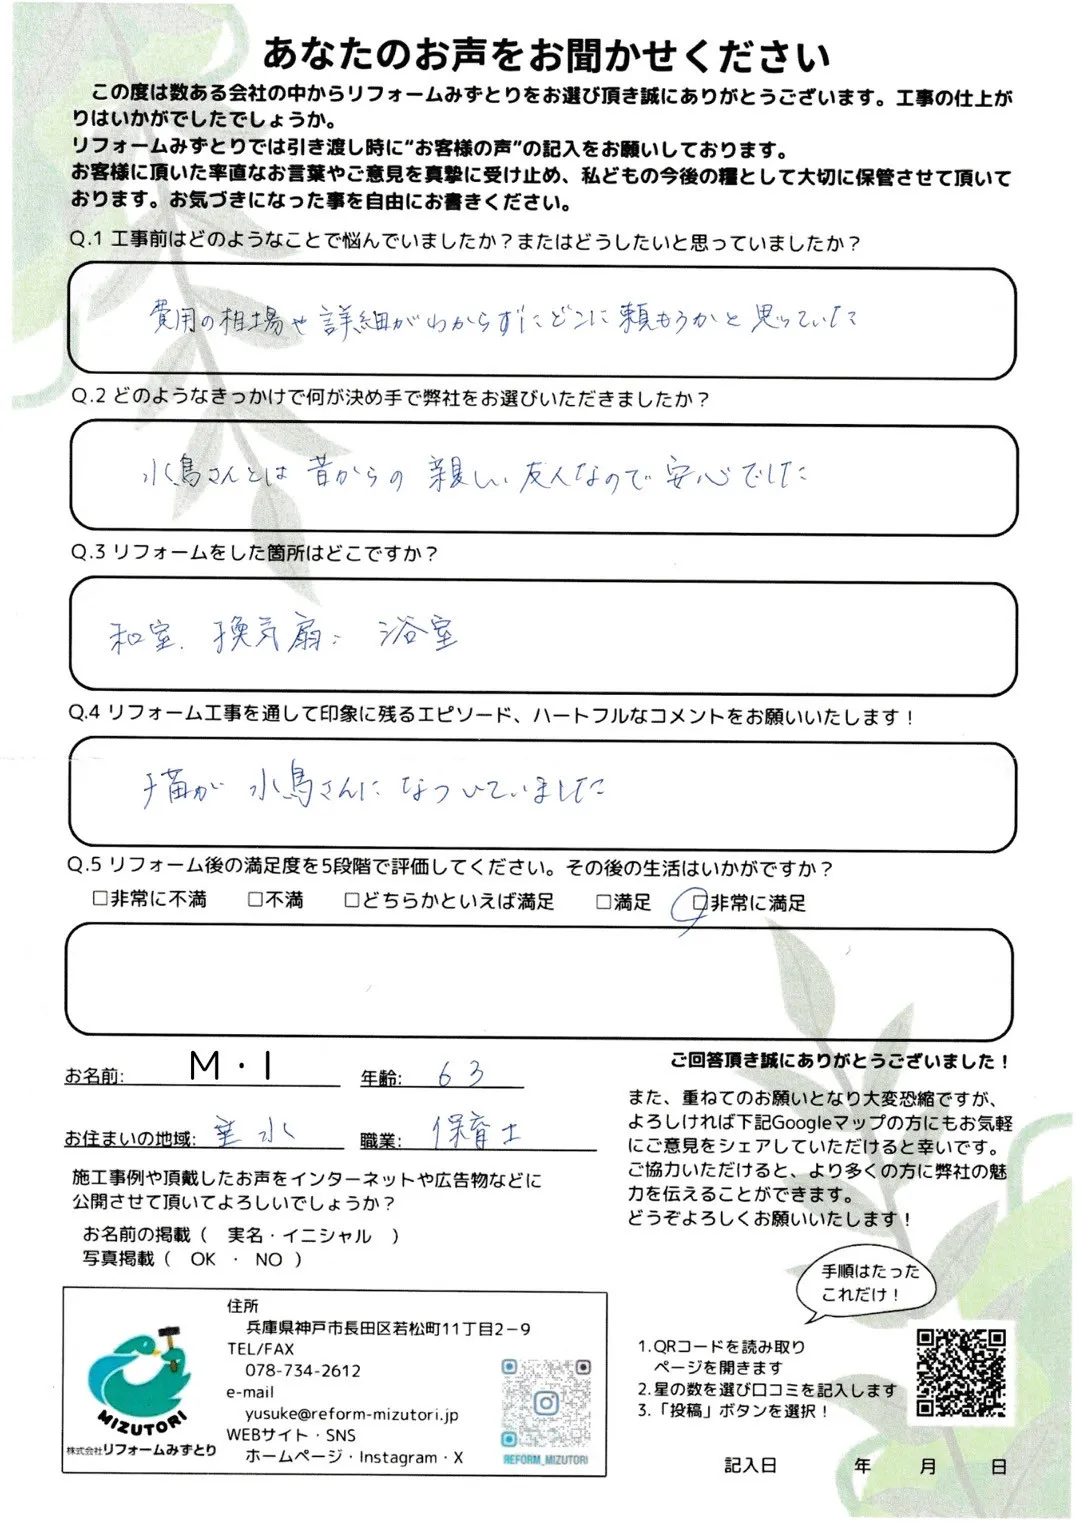 あなたのお声をお聞かせください
この度は数ある会社の中からリフォームみずとりをお選び頂き誠にありがとうございます。工事の仕上が
りはいかがでしたでしょうか。
リフォームみずとりでは引き渡し時に“お客様の声”の記入をお願いしております。
お客様に頂いた率直なお言葉やご意見を真摯に受け止め、私どもの今後の糧として大切に保管させて頂いて
おります。お気づきになった事を自由にお書きください。
Q.1 工事前はどのようなことで悩んでいましたか？またはどうしたいと思っていましたか？
費用の相場や詳細がわからずにどこに頼もうかと思っていた
Q.2 どのようなきっかけで何が決め手で弊社をお選びいただきましたか？
水鳥さんとは昔からの親しい友人なので安心でした
Q.3 リフォームをした箇所はどこですか？
和室、換気扇、浴室
Q.4 リフォーム工事を通して印象に残るエピソード、ハートフルなコメントをお願いいたします！
猫が水鳥さんになついていました
Q.5 リフォーム後の満足度を5段階で評価してください。その後の生活はいかがですか？
□非常に不満 □不満 □どちらかといえば満足 □満足 □非常に満足
お名前: M・I 年齢: 63
お住まいの地域: 垂水 職業: 保育士
施工事例や頂戴したお声をインターネットや広告物などに
公開させて頂いてよろしいでしょうか？
お名前の掲載（ 実名・イニシャル ）
写真掲載（ OK ・ NO ）
ご回答頂き誠にありがとうございました！
また、重ねてのお願いとなり大変恐縮ですが、
よろしければ下記Googleマップの方にもお気軽
にご意見をシェアしていただけると幸いです。
ご協力いただけると、より多くの方に弊社の魅
力を伝えることができます。
どうぞよろしくお願いいたします！
手順はたった
これだけ！
1.QRコードを読み取り
ページを開きます
2.星の数を選び口コミを記入します
3.「投稿」ボタンを選択！
記入日 年 月 日
MIZUTORI
株式会社リフォームみずとり
住所
兵庫県神戸市長田区若松町11丁目2－9
TEL/FAX
078-734-2612
e-mail
yusuke@reform-mizutori.jp
WEBサイト・SNS
ホームページ・Instagram・X
REFORM_MIZUTORI